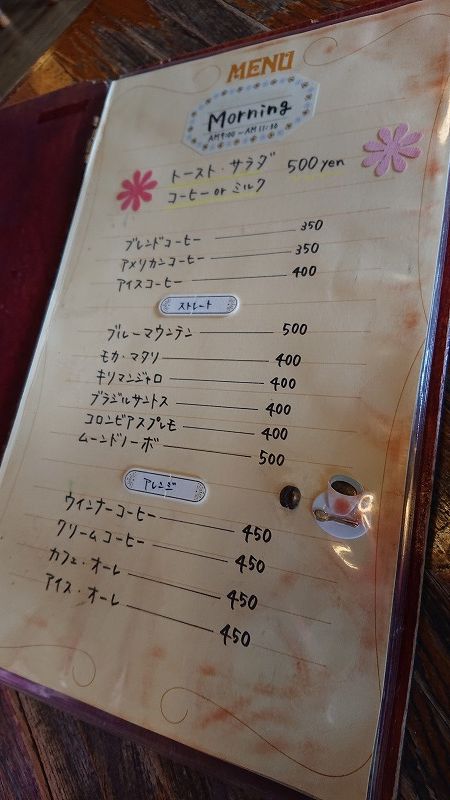 MENU
Morning
AM9:00〜AM11:30
トースト・サラダ 500yen
コーヒー or ミルク
ブレンドコーヒー 350
アメリカンコーヒー 350
アイスコーヒー 400
ストレート
ブルーマウンテン 500
モカ・マタリ 400
キリマンジャロ 400
ブラジルサントス 400
コロンビアスプレモ 400
ムーンドノーボ 500
アレンジ
ウインナーコーヒー 450
クリームコーヒー 450
カフェ・オーレ 450
アイス・オーレ 450